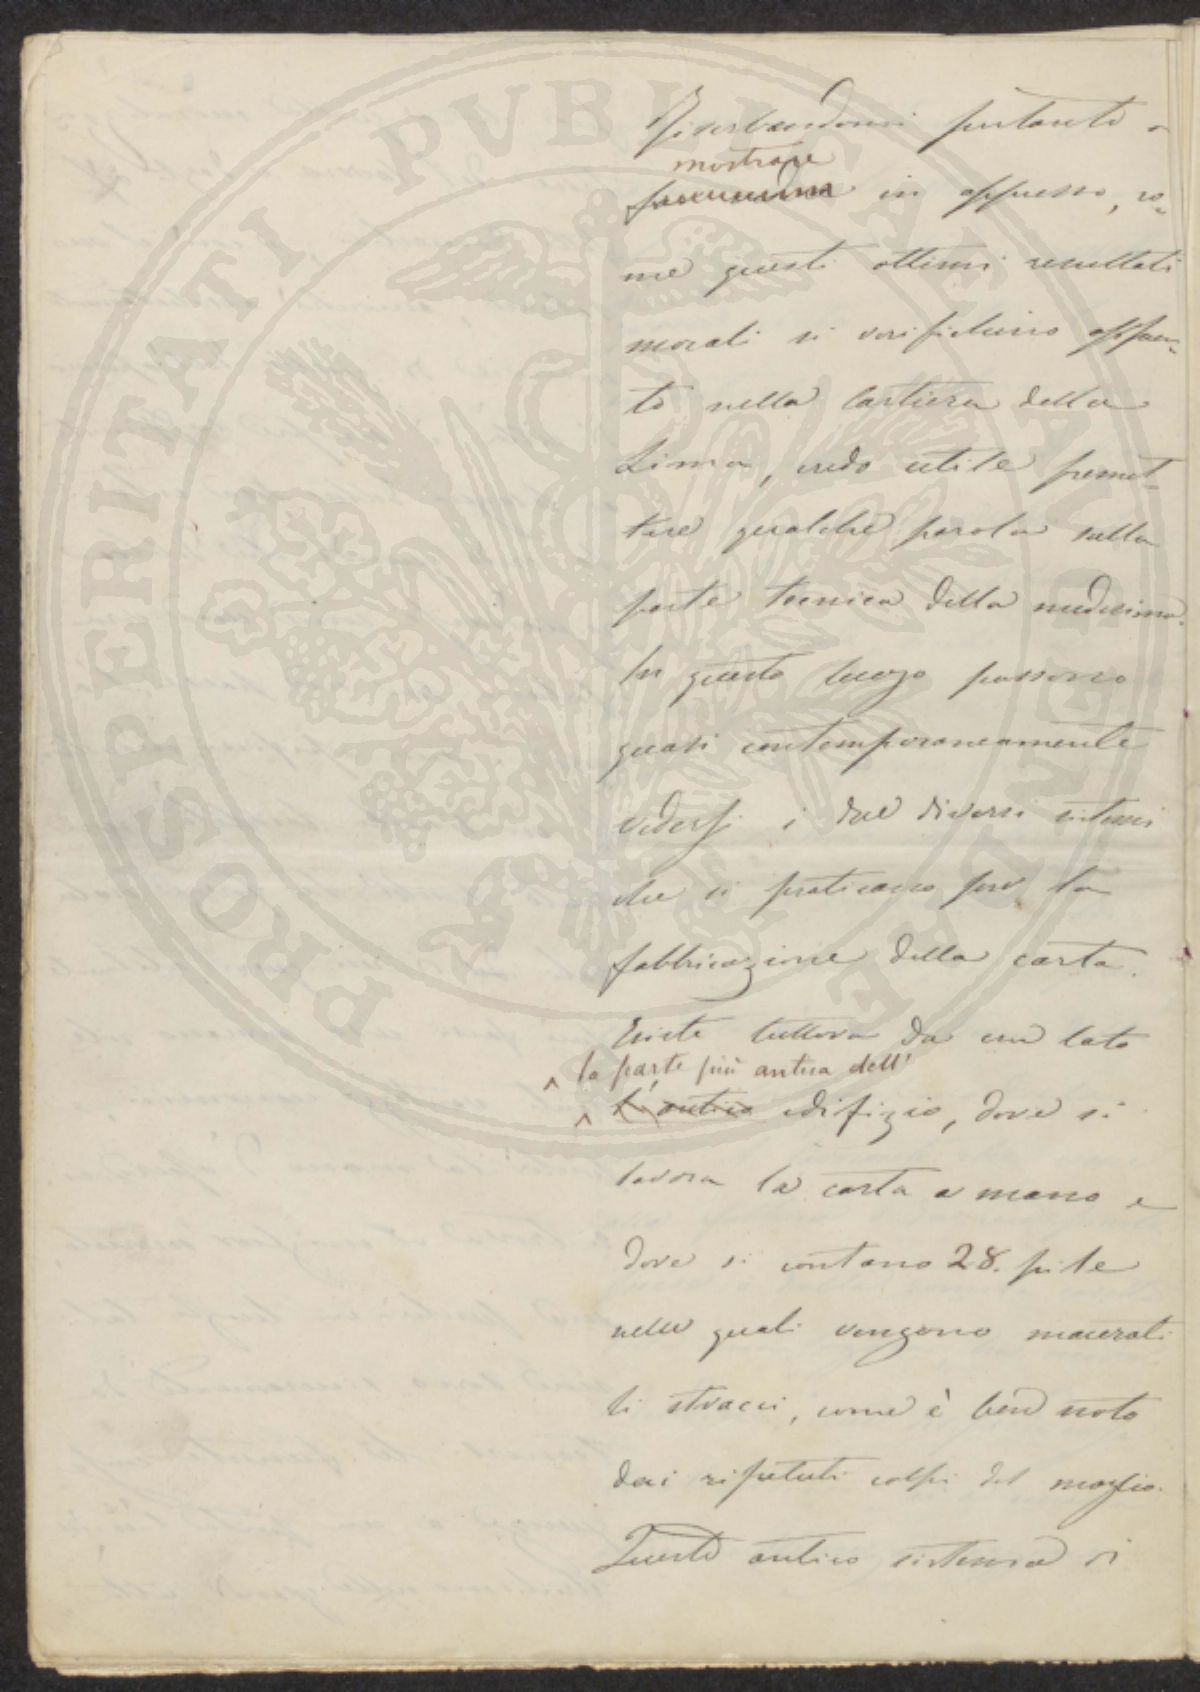 Riserbandomi pertanto a
mostrare
in appresso, co-
me questi ottimi resultati
morali si verifichino appun-
to nella Cartiera della
Lima, credo utile premet-
tere qualche parola sulla
parte tecnica della medesima.
In questo luogo possono
quasi contemporaneamente
vedersi i due diversi sistemi
che si praticano per la
fabbricazione della carta.
Esiste tuttora da un lato
la parte più antica dell'
L'antico edifizio, dove si
lavora la carta a mano e
dove si contano 28. pile
nelle quali vengono macerati
li stracci, come è ben noto
dai ripetuti colpi del maglio.
Questo antico sistema si
PROSPERITATI PVBLICAE AVGENDAE